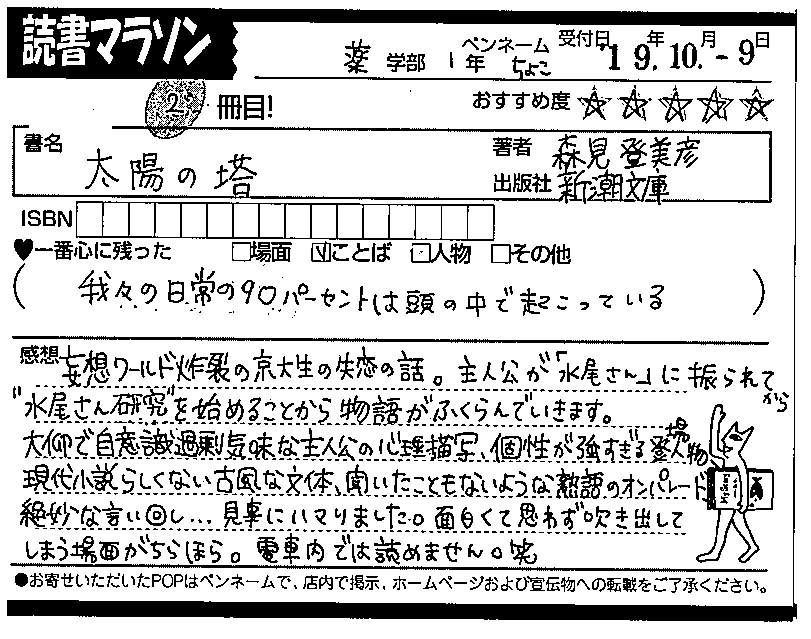 読書マラソン
薬 学部 1年 ペンネーム ちょこ 受付日 '19年10月-9日
2冊目! おすすめ度 ☆☆☆☆☆
書名 太陽の塔
著者 森見登美彦
出版社 新潮文庫
ISBN
♥一番心に残った □場面 ☑ことば □人物 □その他
(我々の日常の90パーセントは頭の中で起こっている)
感想 妄想ワールド炸裂の京大生の失恋の話。主人公が「水尾さん」に振られてから
"水尾さん研究"を始めることから物語がふくらんでいきます。
大仰で自意識過剰気味な主人公の心理描写、個性が強すぎる登場人物
現代小説らしくない古風な文体、聞いたこともないような熟語のオンパレード
絶妙な言い回し…見事にハマりました。面白くて思わず吹き出して
しまう場面がちらほら。電車内では読めません。笑
●お寄せいただいたPOPはペンネームで、店内で掲示、ホームページおよび宣伝物への転載をご了承ください。